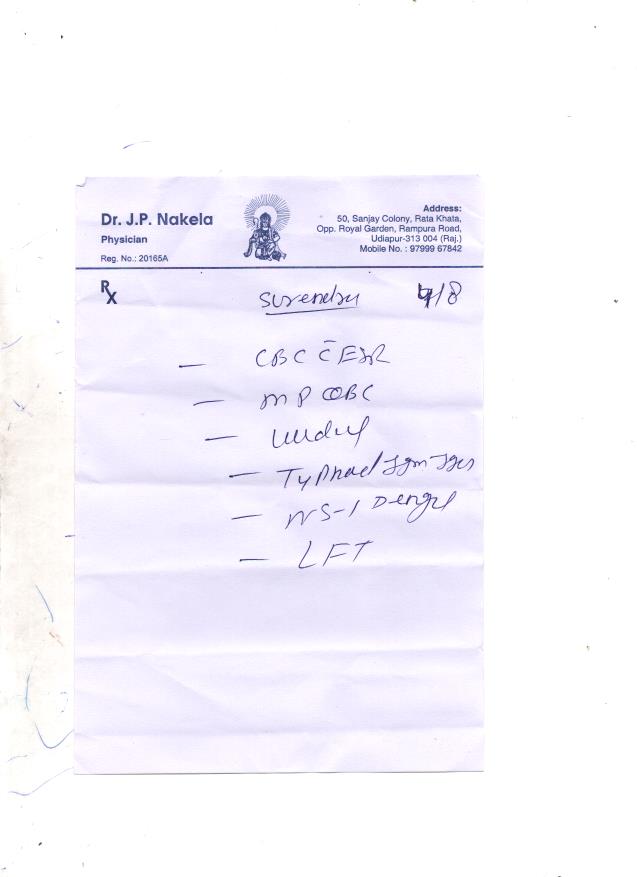 Dr. J.P. Nakela
Physician
Reg. No.: 20165A
Address:
50, Sanjay Colony, Rata Khata,
Opp. Royal Garden, Rampura Road,
Udiapur-313 004 (Raj.)
Mobile No. : 97999 67842
Rx
Surendra /8
— CBC c̄ ESR
— MP QBC
— Widal
— Typhoid IgM IgG
— NS-1 Dengue
— LFT